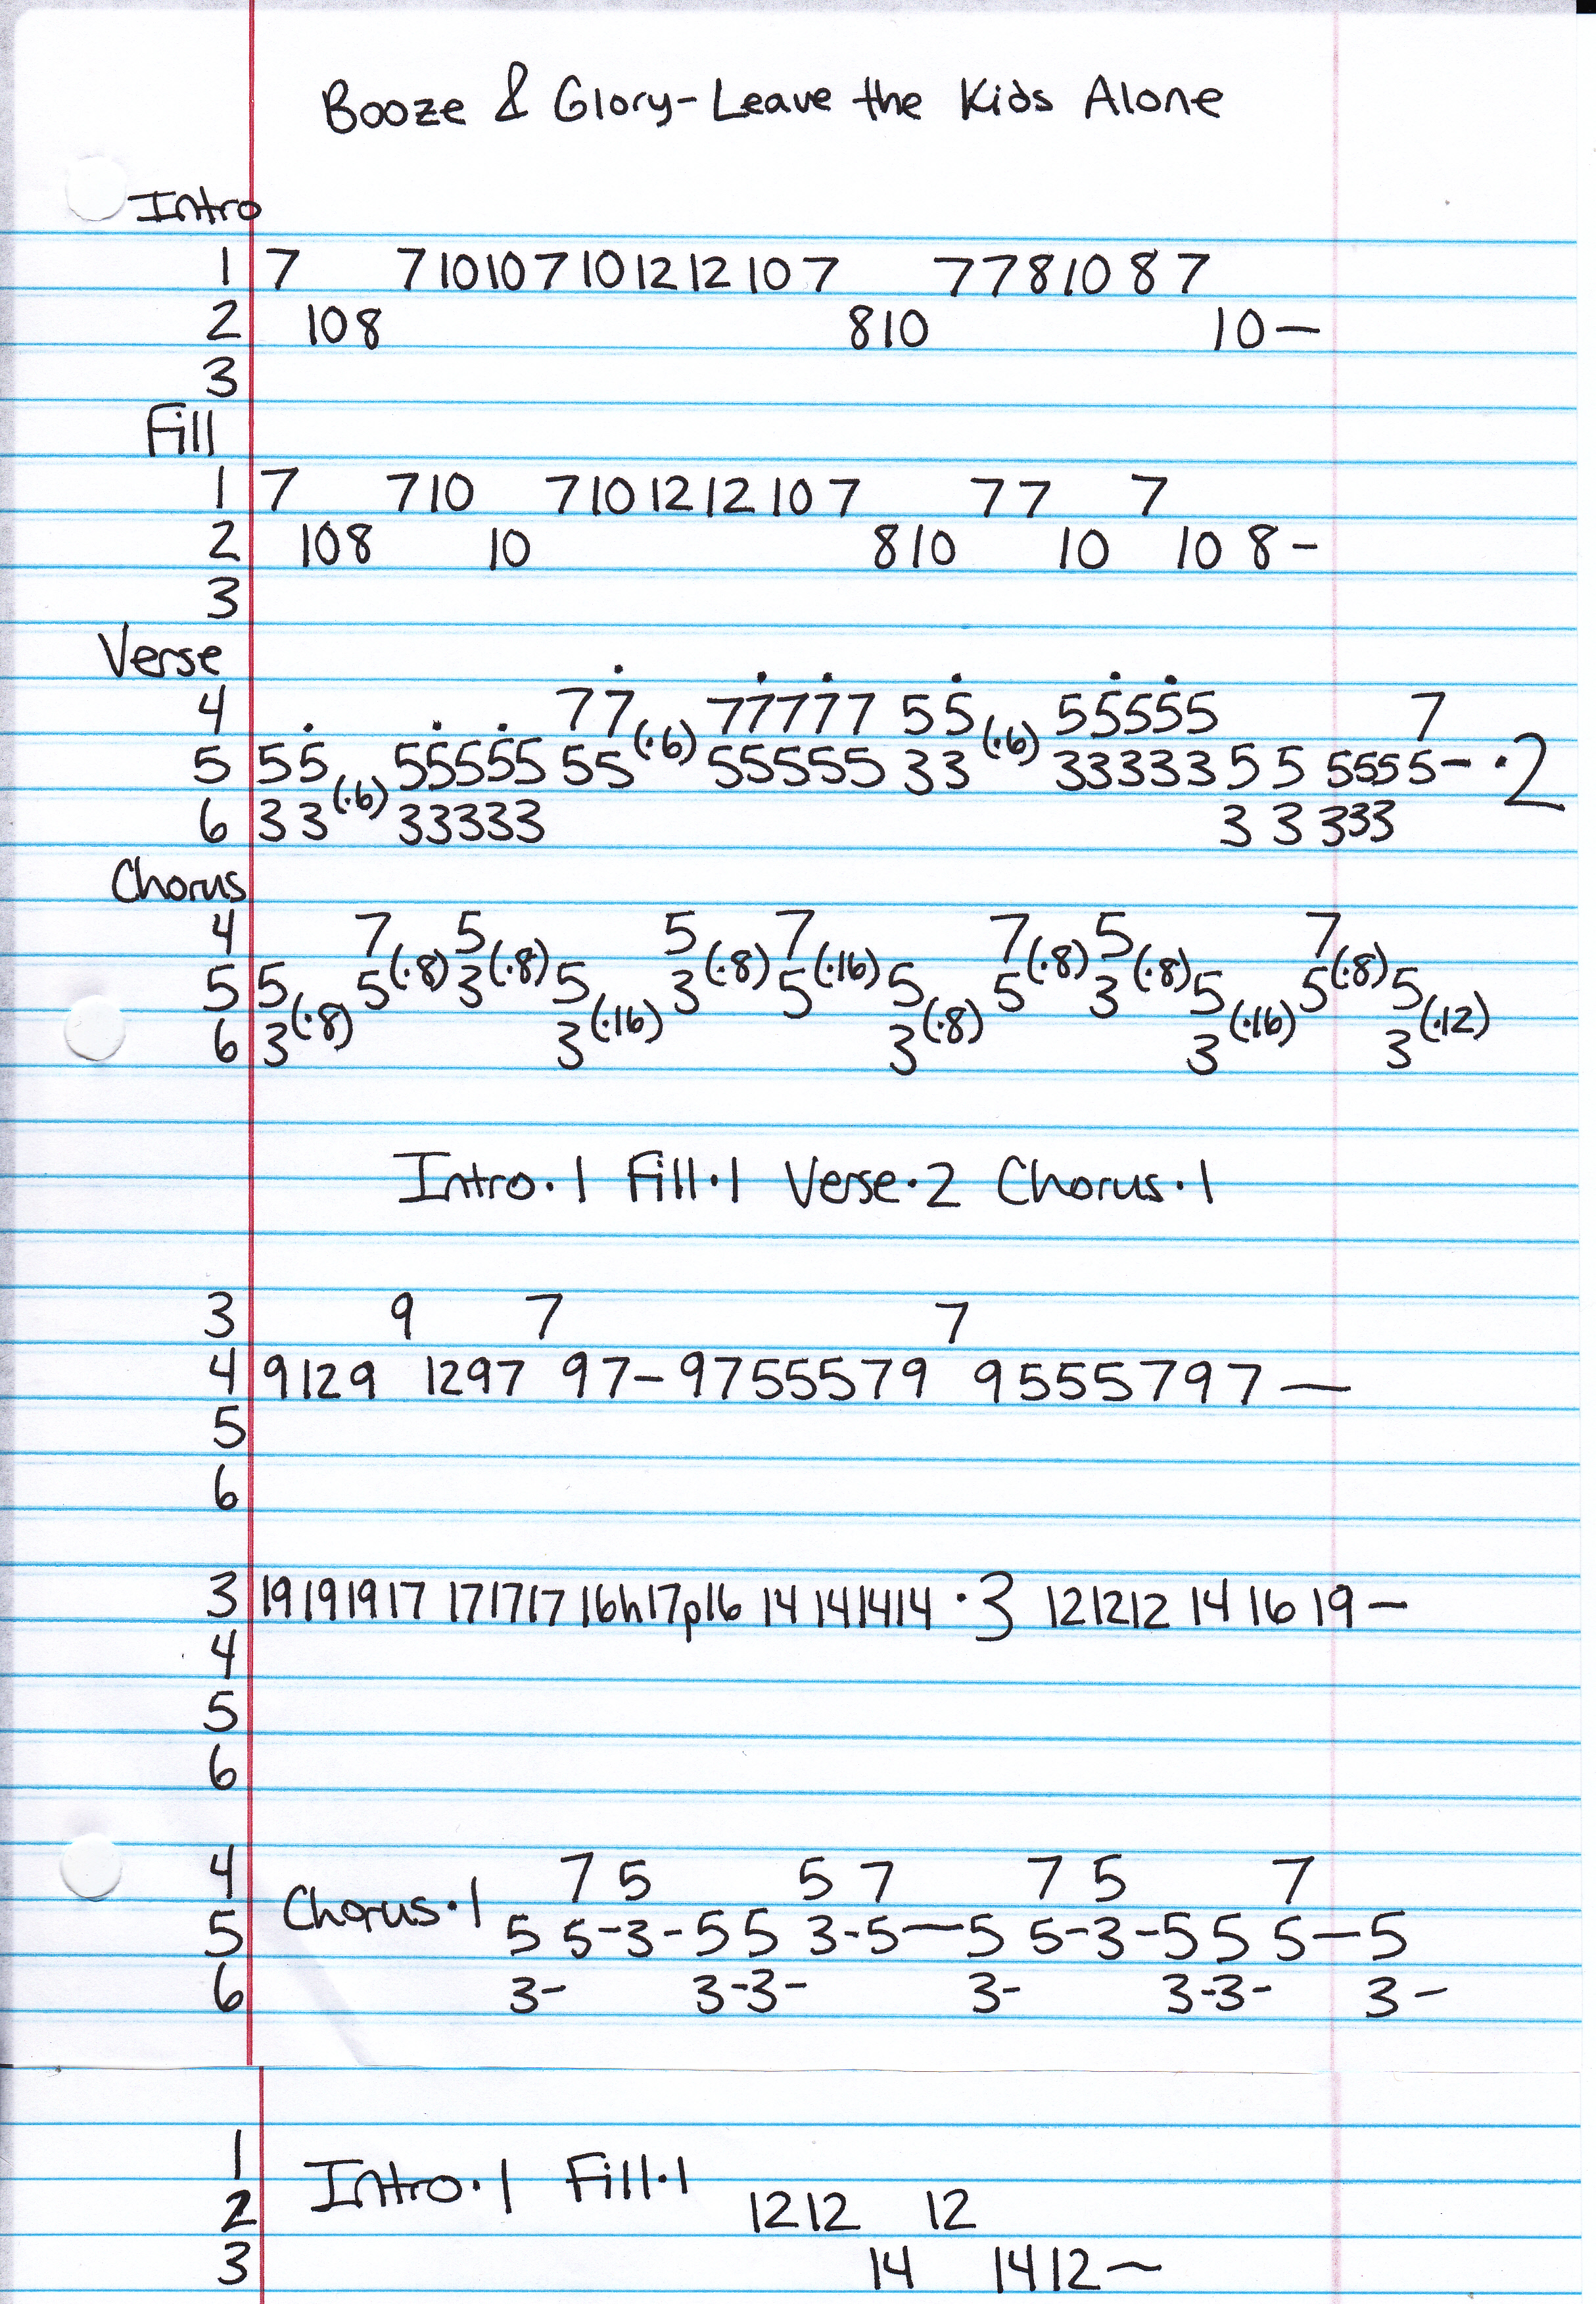 Booze & Glory-Leave the Kids Alone
Intro
1 7 7 10 10 7 10 12 12 10 7 7 7 8 10 8 7
2 10 8 8 10 10—
3
Fill
1 7 7 10 7 10 12 12 10 7 7 7 7
2 10 8 10 8 10 10 10 8-
3
Verse
4 7 7 (·6) 77777 5 5 (·6) 55555 7
5 5 5 (·6) 55555 55 55555 33 33333 5 5 555 5- ·2
6 3 3 33333 3 3 333
Chorus
4 7 (·8) 5 (·8) 5 (·8) 7 (·16) 7 (·8) 5 (·8) 7 (·8)
5 5 (·8) 5 3 5 (·16) 3 5 5 (·8) 5 3 5 (·16) 5 5 (·12)
6 3 3 3 3 3
Intro·1 Fill·1 Verse·2 Chorus·1
3 9 7 7
4 9 12 9 12 9 7 9 7- 9 7 5 5 5 7 9 9 5 5 5 7 9 7—
5
6
3 19 19 19 17 17 17 17 16h17p16 14 14 14 14 ·3 12 12 12 14 16 19—
4
5
6
4 7 5 5 7 7 5 7
Chorus·1
5 5 5-3-5 5 3-5—5 5-3-5 5 5—5
6 3- 3-3- 3- 3-3- 3-
1
Intro·1 Fill·1
2 12 12 12
3 14 14 12—